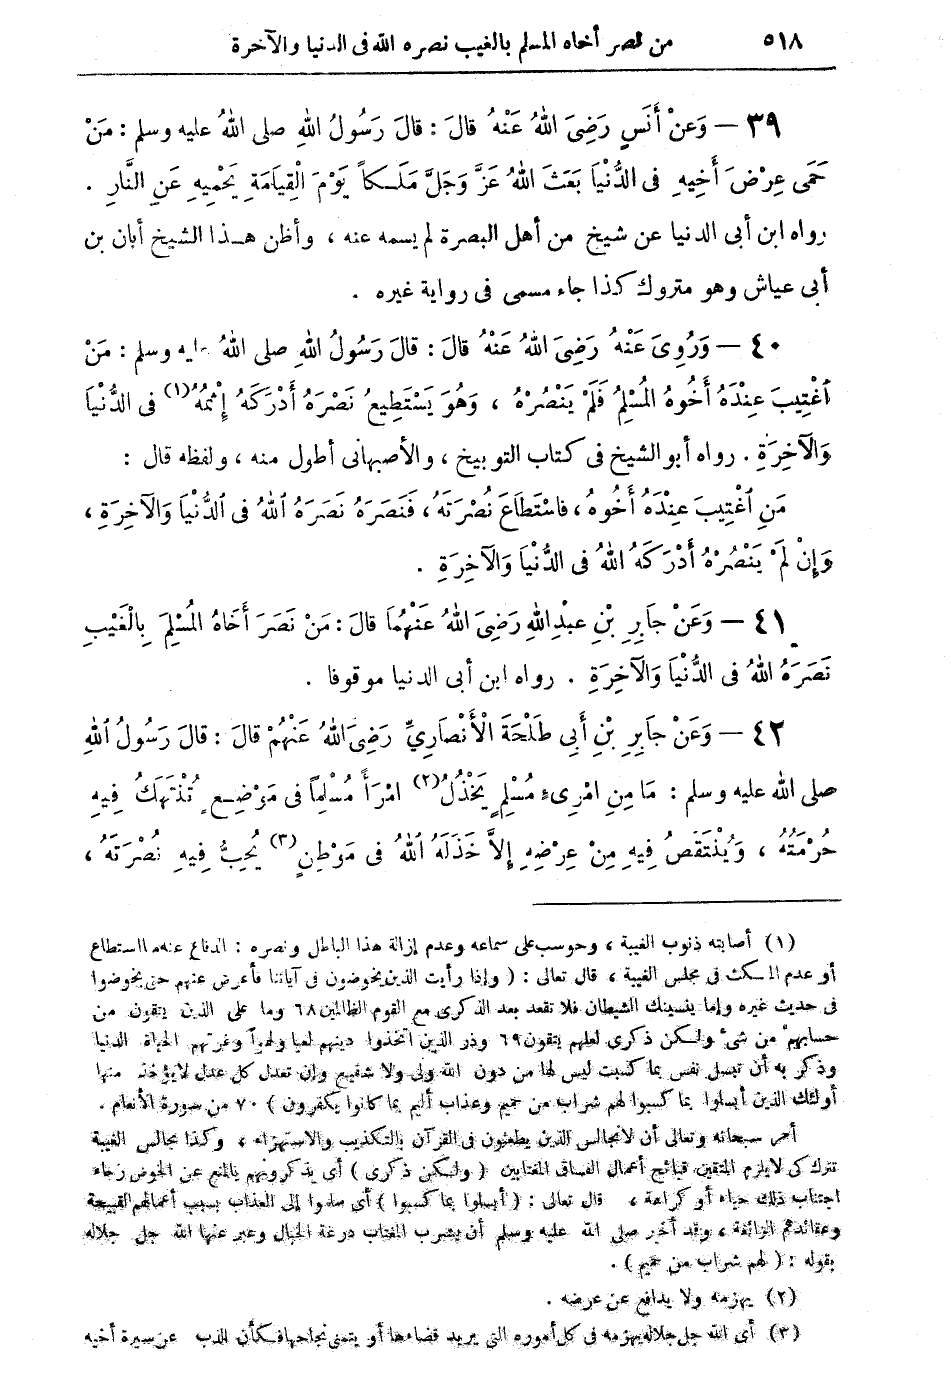 ٥١٨ من نصر أخاه المسلم بالغيب نصره الله فى الدنيا والآخرة
٣٩ — وَعَنْ أَنَسٍ رَضِىَ اللهُ عَنْهُ قالَ : قالَ رَسُولُ اللهِ صلى اللهُ عليه وسلم : مَنْ
حَمَى عِرْضَ أَخِيهِ فى الدُّنْيَا بَعَثَ اللهُ عَزَّ وَجَلَّ مَلَكاً يَوْمَ الْقِيَامَةِ يَحْمِيهِ عَنِ النَّارِ .
رواه ابن أبى الدنيا عن شيخ من أهل البصرة لم يسمه عنه ، وأظن هذا الشيخ أبان بن
أبى عياش وهو متروك كذا جاء مسمى فى رواية غيره .
٤٠ — وَرُوِىَ عَنْهُ رَضِىَ اللهُ عَنْهُ قالَ : قالَ رَسُولُ اللهِ صلى اللهُ عليه وسلم : مَنْ
اغْتِيبَ عِنْدَهُ أَخُوهُ المُسْلِمُ فَلَمْ يَنْصُرْهُ ، وَهُوَ يَسْتَطِيعُ نَصْرَهُ أَدْرَكَهُ إِثْمُهُ(١) فى الدُّنْيَا
وَالْآخِرَةِ . رواه أبو الشيخ فى كتاب التوبيخ ، والأصبهانى أطول منه ، ولفظه قال :
مَنِ اغْتِيبَ عِنْدَهُ أَخُوهُ ، فاسْتَطَاعَ نُصْرَتَهُ ، فَنَصَرَهُ نَصَرَهُ اللهُ فى الدُّنْيَا وَالْآخِرَةِ ،
وَإِنْ لَمْ يَنْصُرْهُ أَدْرَكَهُ اللهُ فى الدُّنْيَا وَالْآخِرَةِ .
٤١ — وَعَنْ جَابِرِ بْنِ عبْدِ اللهِ رَضِىَ اللهُ عَنْهُمَا قالَ : مَنْ نَصَرَ أَخَاهُ المُسْلِمَ بِالْغَيْبِ
نَصَرَهُ اللهُ فى الدُّنْيَا وَالْآخِرَةِ . رواه ابن أبى الدنيا موقوفا .
٤٢ — وَعَنْ جَابِرِ بْنِ أَبِى طَلْحَةَ الْأَنْصَارِيِّ رَضِىَ اللهُ عَنْهُمْ قالَ : قالَ رَسُولُ اللهِ
صلى الله عليه وسلم : مَا مِنِ امْرِىءٍ مُسْلِمٍ يَخْذُلُ(٢) امْرَأً مُسْلِماً فى مَوْضِعٍ تُنْتَهَكُ فِيهِ
حُرْمَتُهُ ، وَيُنْتَقَصُ فِيهِ مِنْ عِرْضِهِ إِلاَّ خَذَلَهُ اللهُ فى مَوْطِنٍ(٣) يُحِبُّ فِيهِ نُصْرَتَهُ ،
(١) أصابته ذنوب الغيبة ، وحوسب على سماعه وعدم إزالة هذا الباطل ونصره : الدفاع عنه ما استطاع
أو عدم المكث فى مجلس الغيبة ، قال تعالى : ( وإذا رأيت الذين يخوضون فى آياتنا فأعرض عنهم حتى يخوضوا
فى حديث غيره وإما ينسينك الشيطان فلا تقعد بعد الذكرى مع القوم الظالمين ٦٨ وما على الذين يتقون من
حسابهم من شىء ولكن ذكرى لعلهم يتقون ٦٩ وذر الذين اتخذوا دينهم لعبا ولهوا وغرتهم الحياة الدنيا
وذكر به أن تبسل نفس بما كسبت ليس لها من دون الله ولى ولا شفيع وإن تعدل كل عدل لايؤخذ منها
أولئك الذين أبسلوا بما كسبوا لهم شراب من حميم وعذاب أليم بما كانوا يكفرون ) ٧٠ من سورة الأنعام .
أمر سبحانه وتعالى أن لانجالس الذين يطعنون فى القرآن بالتكذيب والاستهزاء ، وكذا مجالس الغيبة
تترك كى لايلزم المتقين قبائح أعمال الفساق المغتابين ( ولكن ذكرى ) أى يذكرونهم بالمنع عن الخوض رجاء
اجتناب ذلك حياء أو كراعة ، قال تعالى : ( أبسلوا بما كسبوا ) أى سلموا إلى العذاب بسبب أعمالهم القبيحة
وعقائدهم الزائفة ، وقد أخبر صلى الله عليه وسلم أن يشرب المغتاب درغة الخبال وعبر عنها الله جل جلاله
بقوله : ( لهم شراب من حميم ) .
(٢) يهزمه ولا يدافع عن عرضه .
(٣) أى الله جل جلاله يهزمه فى كل أموره التى يريد قضاءها أو يتمنى نجاحها فكأن الذب عن سيرة أخيه